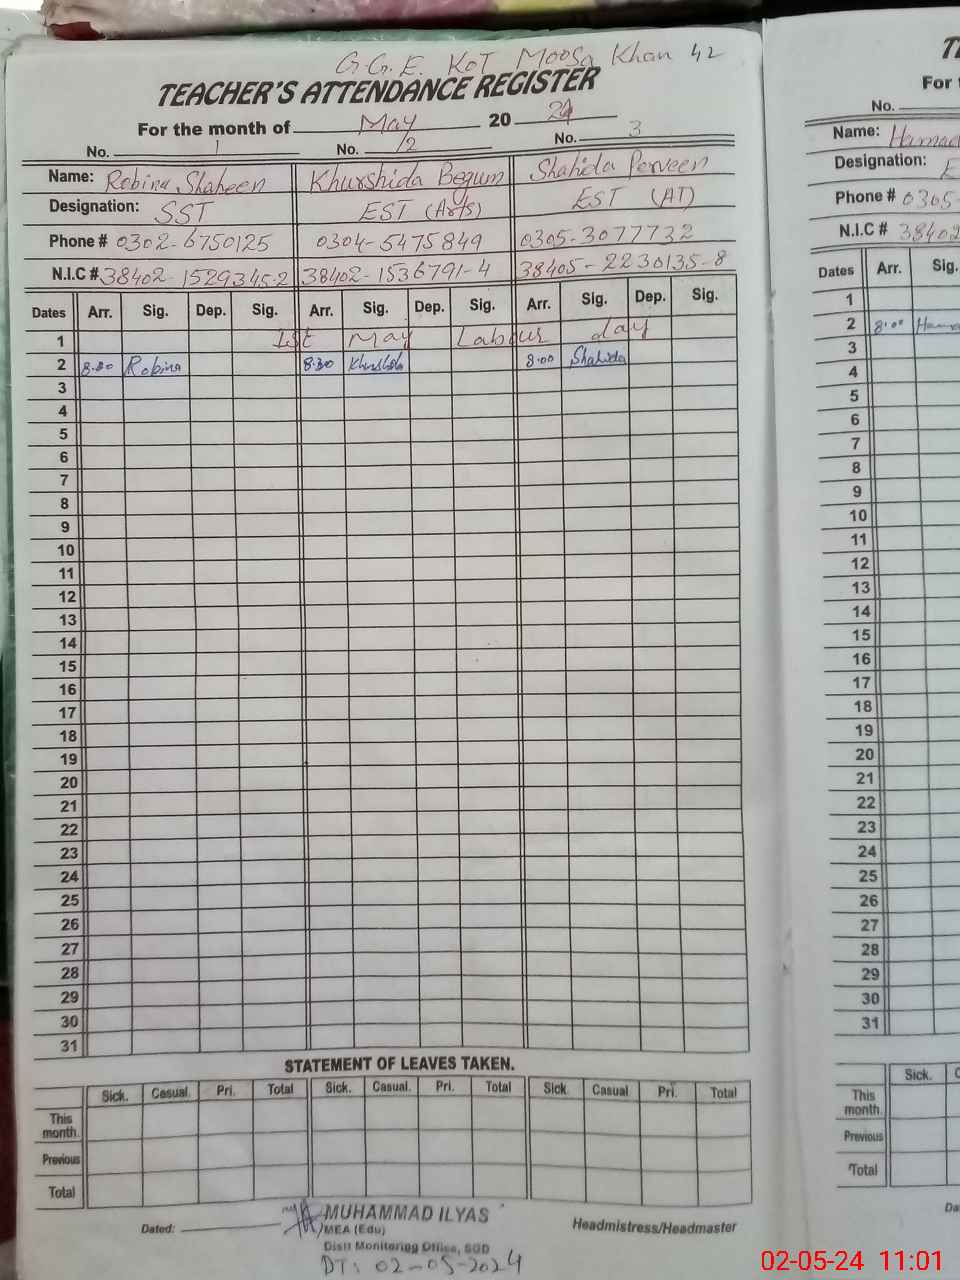 G.G.E. KOT Moosa Khan 42
TEACHER'S ATTENDANCE REGISTER
For the month of May 20 24
No. 1 No. 2 No. 3
Name: Robina Shaheen Khurshida Begum Shahida Perveen
Designation: SST EST (Arts) EST (AT)
Phone # 0302-6750125 0304-5475849 0305-3077732
N.I.C # 38402-1529345-2 38402-1536791-4 38405-2230135-8
Dates Arr. Sig. Dep. Sig. Arr. Sig. Dep. Sig. Arr. Sig. Dep. Sig.
1 1st May Labour day
2 8:30 Robina 8:30 Khurshida 8:00 Shahida
3
4
5
6
7
8
9
10
11
12
13
14
15
16
17
18
19
20
21
22
23
24
25
26
27
28
29
30
31
STATEMENT OF LEAVES TAKEN.
Sick. Casual. Pri. Total Sick. Casual. Pri. Total Sick. Casual Pri. Total
This month.
Previous
Total
Dated: Headmistress/Headmaster
MUHAMMAD ILYAS
MEA (Edu)
Distt Monitoring Office, SGD
DT: 02-05-2024
For
No.
Name:
Designation: E
Phone # 0305-
N.I.C # 38402
Dates Arr. Sig.
1
2 8:00
3
4
5
6
7
8
9
10
11
12
13
14
15
16
17
18
19
20
21
22
23
24
25
26
27
28
29
30
31
Sick.
This month.
Previous
Total
02-05-24 11:01